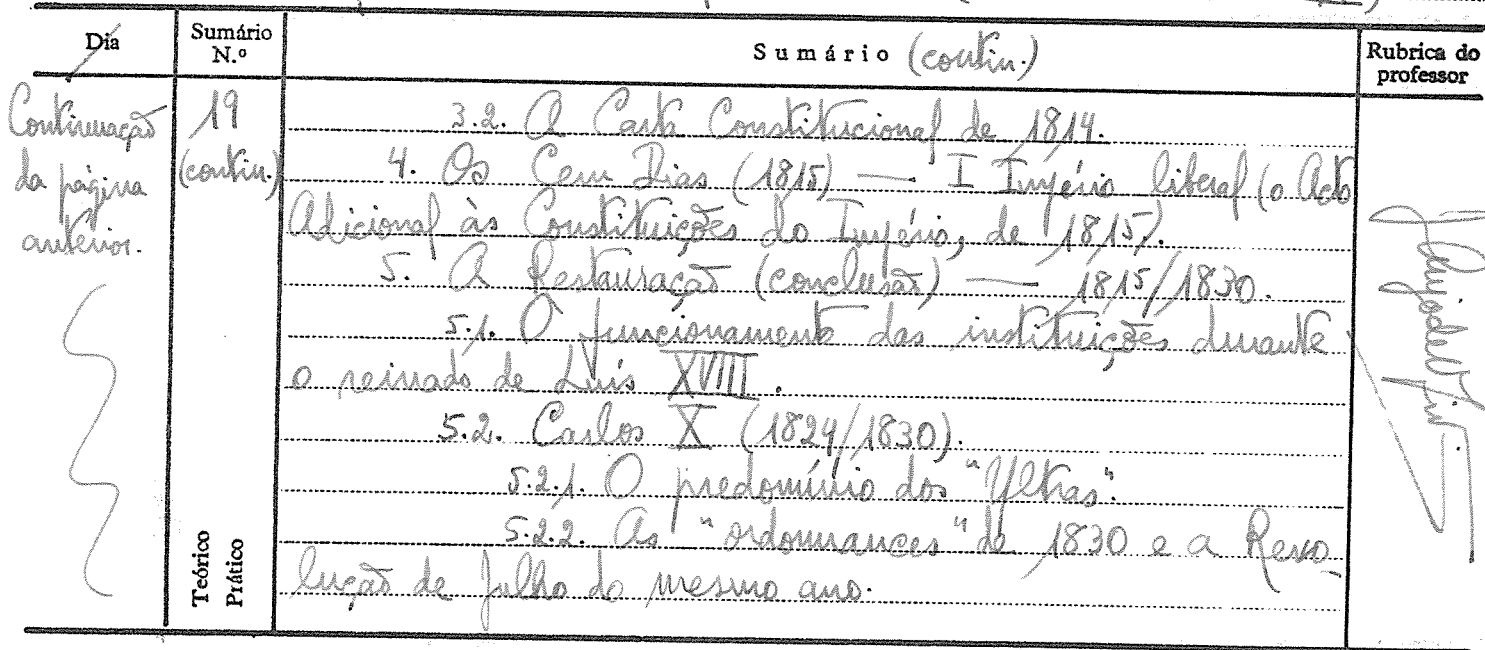 Dia
Sumário N.º
Sumário (contin.)
Rubrica do professor
Continuação da página anterior.
19 (contin.)
3.2. A Carta Constitucional de 1814.
4. Os Cem Dias (1815) — I Império liberal (o Acto
Adicional às Constituições do Império, de 1815).
5. A Restauração (conclusão) — 1815/1830.
5.1. O funcionamento das instituições durante
o reinado de Luís XVIII.
5.2. Carlos X (1824/1830).
5.2.1. O predomínio dos "Ultras".
5.2.2. As "ordonnances" de 1830 e a Revo-
lução de Julho do mesmo ano.
Teórico
Prático